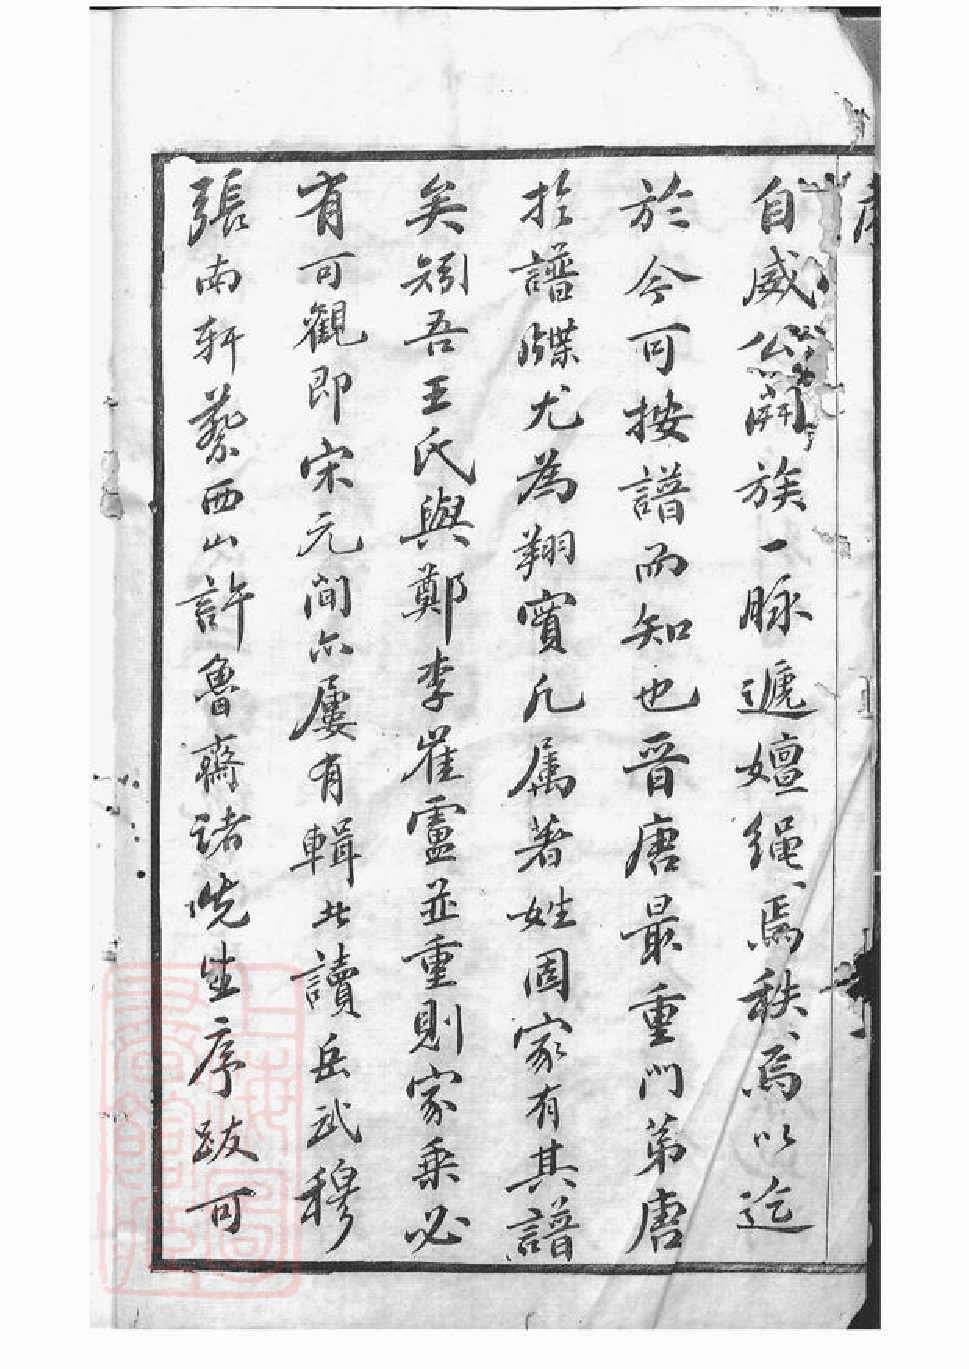 自威公開族一脉遞嬗繩、焉秩、焉以迄
於今可按譜而知也晉唐最重門第唐
於譜牒尤為翔實凡属著姓固家有其譜
矣矧吾王氏與鄭李崔盧並重則家乘必
有可觀即宋元間亦屢有輯北讀岳武穆
張南軒蔡西山許魯齋诸先生序跋可
上海圖書館藏